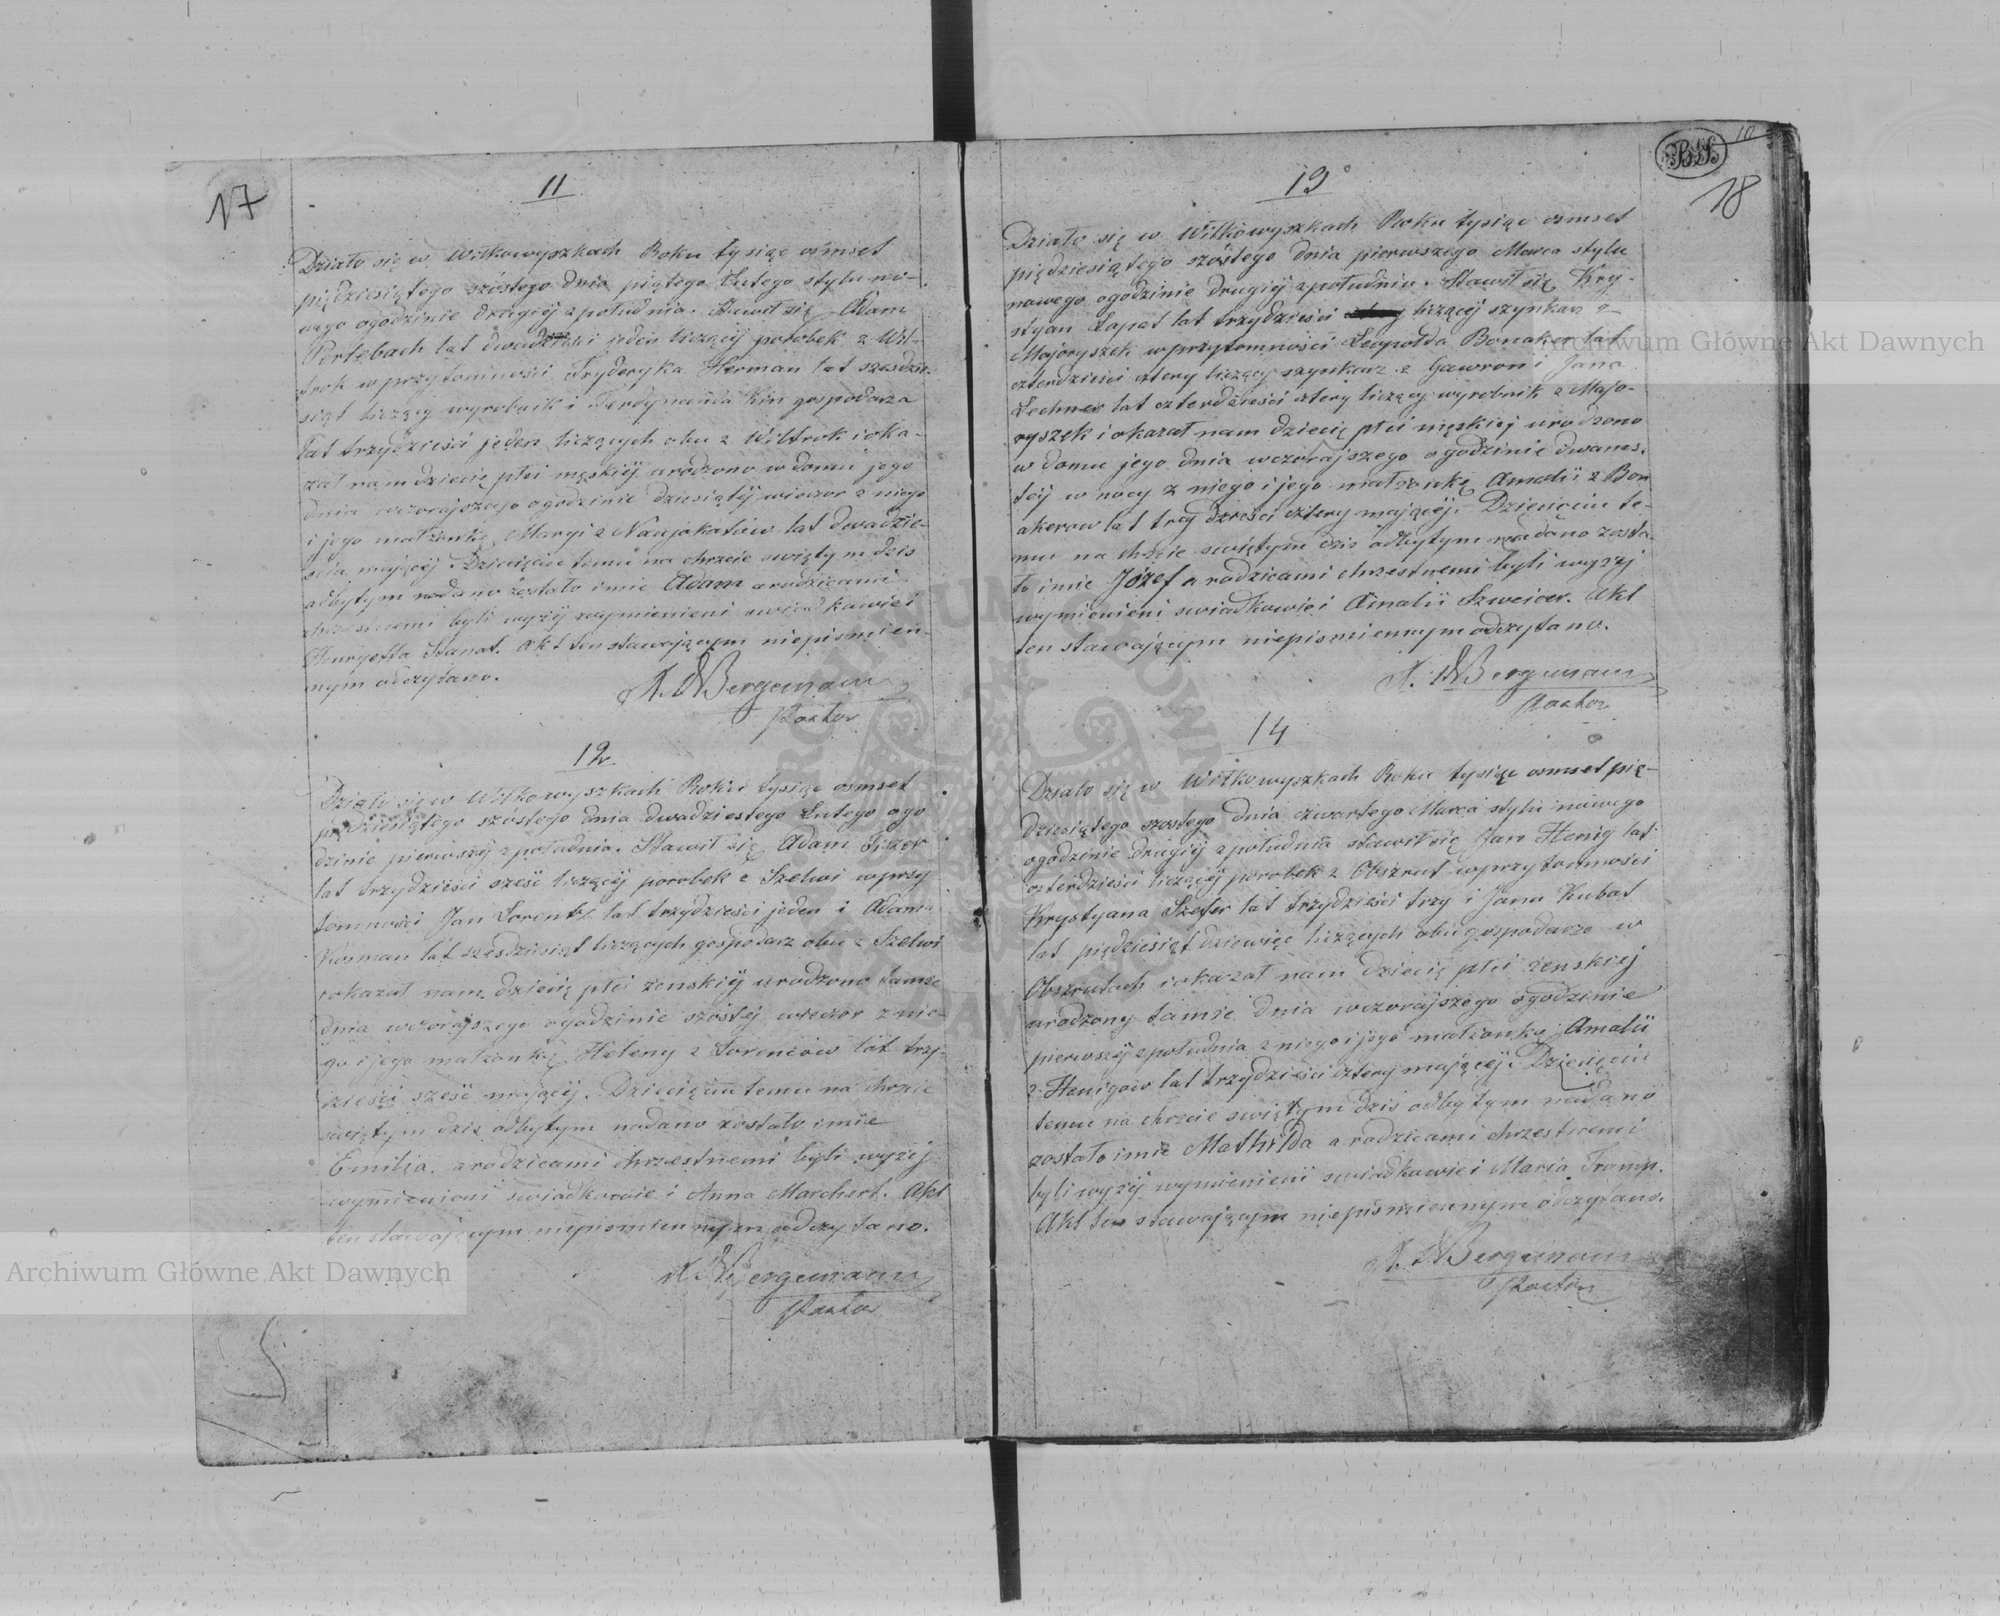 17
11
Działo się w Wiłkowyszkach Roku tysiąc osmset
pięćdziesiątego szóstego dnia piątego Lutego stylu no-
wego ogodzinie drugiéj zpołudnia. Stawił się Adam
Pertebach lat dwadzieści jeden liczący parobek z Wil-
trok wprzytomności Fryderyka Herman lat sześdzie-
siąt liczący wyrobnik i Ferdynanda Kin gospodarza
lat trzydzieści jeden liczących obu z Wiltrok i oka-
zał nam dziecię płci męskiéj urodzone w domu jego
dnia wczorajszego ogodzinie dziesiątéj wieczor z niego
i jego małżonki Maryi z Naujokatów lat dwadzie-
ścia mającéj. Dziecięciu temu na chrzcie swiętym dzis
odbytym nadano zostało imie Adam a rodzicami
chrzestnemi byli wyżéj wymienieni swiadkowie i
Henryetta Stanat. Akt ten stawającym niepismien-
nym odczytano.
Bergemann
Pastor
12
Działo się w Wiłkowyszkach Roku tysiąc osmset
pięćdziesiątego szóstego dnia dwudziestego Lutego ogo
dzinie pierwszéj zpołudnia. Stawił się Adam Fiszer
lat trzydzieści sześć liczącéj parobek z Szelwi wprzy
tomności Jan Lorentz lat trzydzieści jeden i Adama
Kosman lat sześdziesiąt liczących gospodarz obu z Szelwi
i okazał nam dziecię płci żenskiéj urodzone tamże
dnia wczorajszego ogodzinie szóstéj wieczor z nie-
go i jego małżonki Heleny z Lorenców lat trzy-
dzieści sześć mającéj. Dziecięciu temu na chrzcie
swiętym dzis odbytym nadano zostało imie
Emilia. a rodzicami chrzestnemi byli wyżéj
wymienieni swiadkowie i Anna Marchert. Akt
ten stawającym niepismiennym odczytano.
Bergemann
Pastor
10
BS
18
13
Działo się w Wiłkowyszkach Roku tysiąc osmset
pięćdziesiątego szóstego dnia pierwszego Marca stylu
nowego ogodzinie drugiéj zpołudniu. Stawił się Kry-
styan Łapat lat trzydzieści liczącéj szynkarz z
Majoryszek wprzytomności Leopolda Bonaker lat
czterdzieści cztery liczący szynkarz z Gawron i Jana
Lechner lat czterdzieści cztery liczący wyrobnik z Majo-
ryszek i okazał nam dziecię płci męskiéj urodzone
w domu jego dnia wczorajszego ogodzinie dwanas-
téj w nocy z niego i jego małżonki Amelii z Bon
akerow lat trzydzieści cztery mającéj. Dziecięciu te-
mu na chrzcie swiętym dzis odbytym nadano zosta-
ło imie Józef a rodzicami chrzestnemi byli wyżéj
wymienieni swiadkowie i Amalii Szweicer. Akt
ten stawającym niepismiennym odczytano.
Bergemann
Pastor
14
Działo się w Wiłkowyszkach Roku tysiąc osmset pię-
dziesiątego szóstego dnia czwartego Marca stylu nowego
ogodzinie drugiéj zpołudnia stawił się Jan Henig lat
czterdzieści liczącéj parobek z Obszrut wprzytomności
Krystyana Szefer lat trzydzieści trzy i Jana Kubat
lat pięćdziesiąt dziewięć liczących obu gospodarze w
Obszrutach i okazał nam dziecię płci żenskiéj
urodzony tamże dnia wczorajszego ogodzinie
pierwszéj zpołudnia z niego i jego małżonki Amalii
z Henigow lat trzydzieści cztery mającéj. Dziecięciu
temu na chrzcie swiętym dzis odbytym nadano
zostało imie Mathilda a rodzicami chrzestnemi
byli wyżéj wymienieni swiadkowie i Maria Tramp.
Akt ten stawającym niepismiennym odczytano.
Bergemann
Pastor
Archiwum Główne Akt Dawnych
Archiwum Główne Akt Dawnych